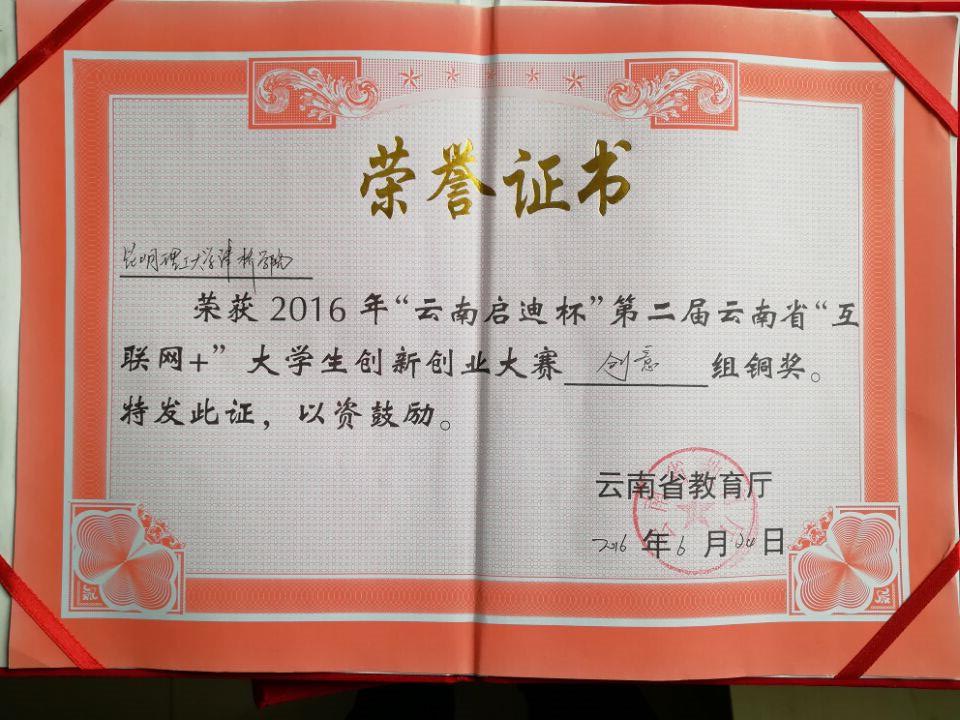 荣誉证书
昆明理工大学津桥学院
荣获2016年“云南启迪杯”第二届云南省“互
联网+”大学生创新创业大赛创意组铜奖。
特发此证，以资鼓励。
云南省教育厅
2016年6月24日